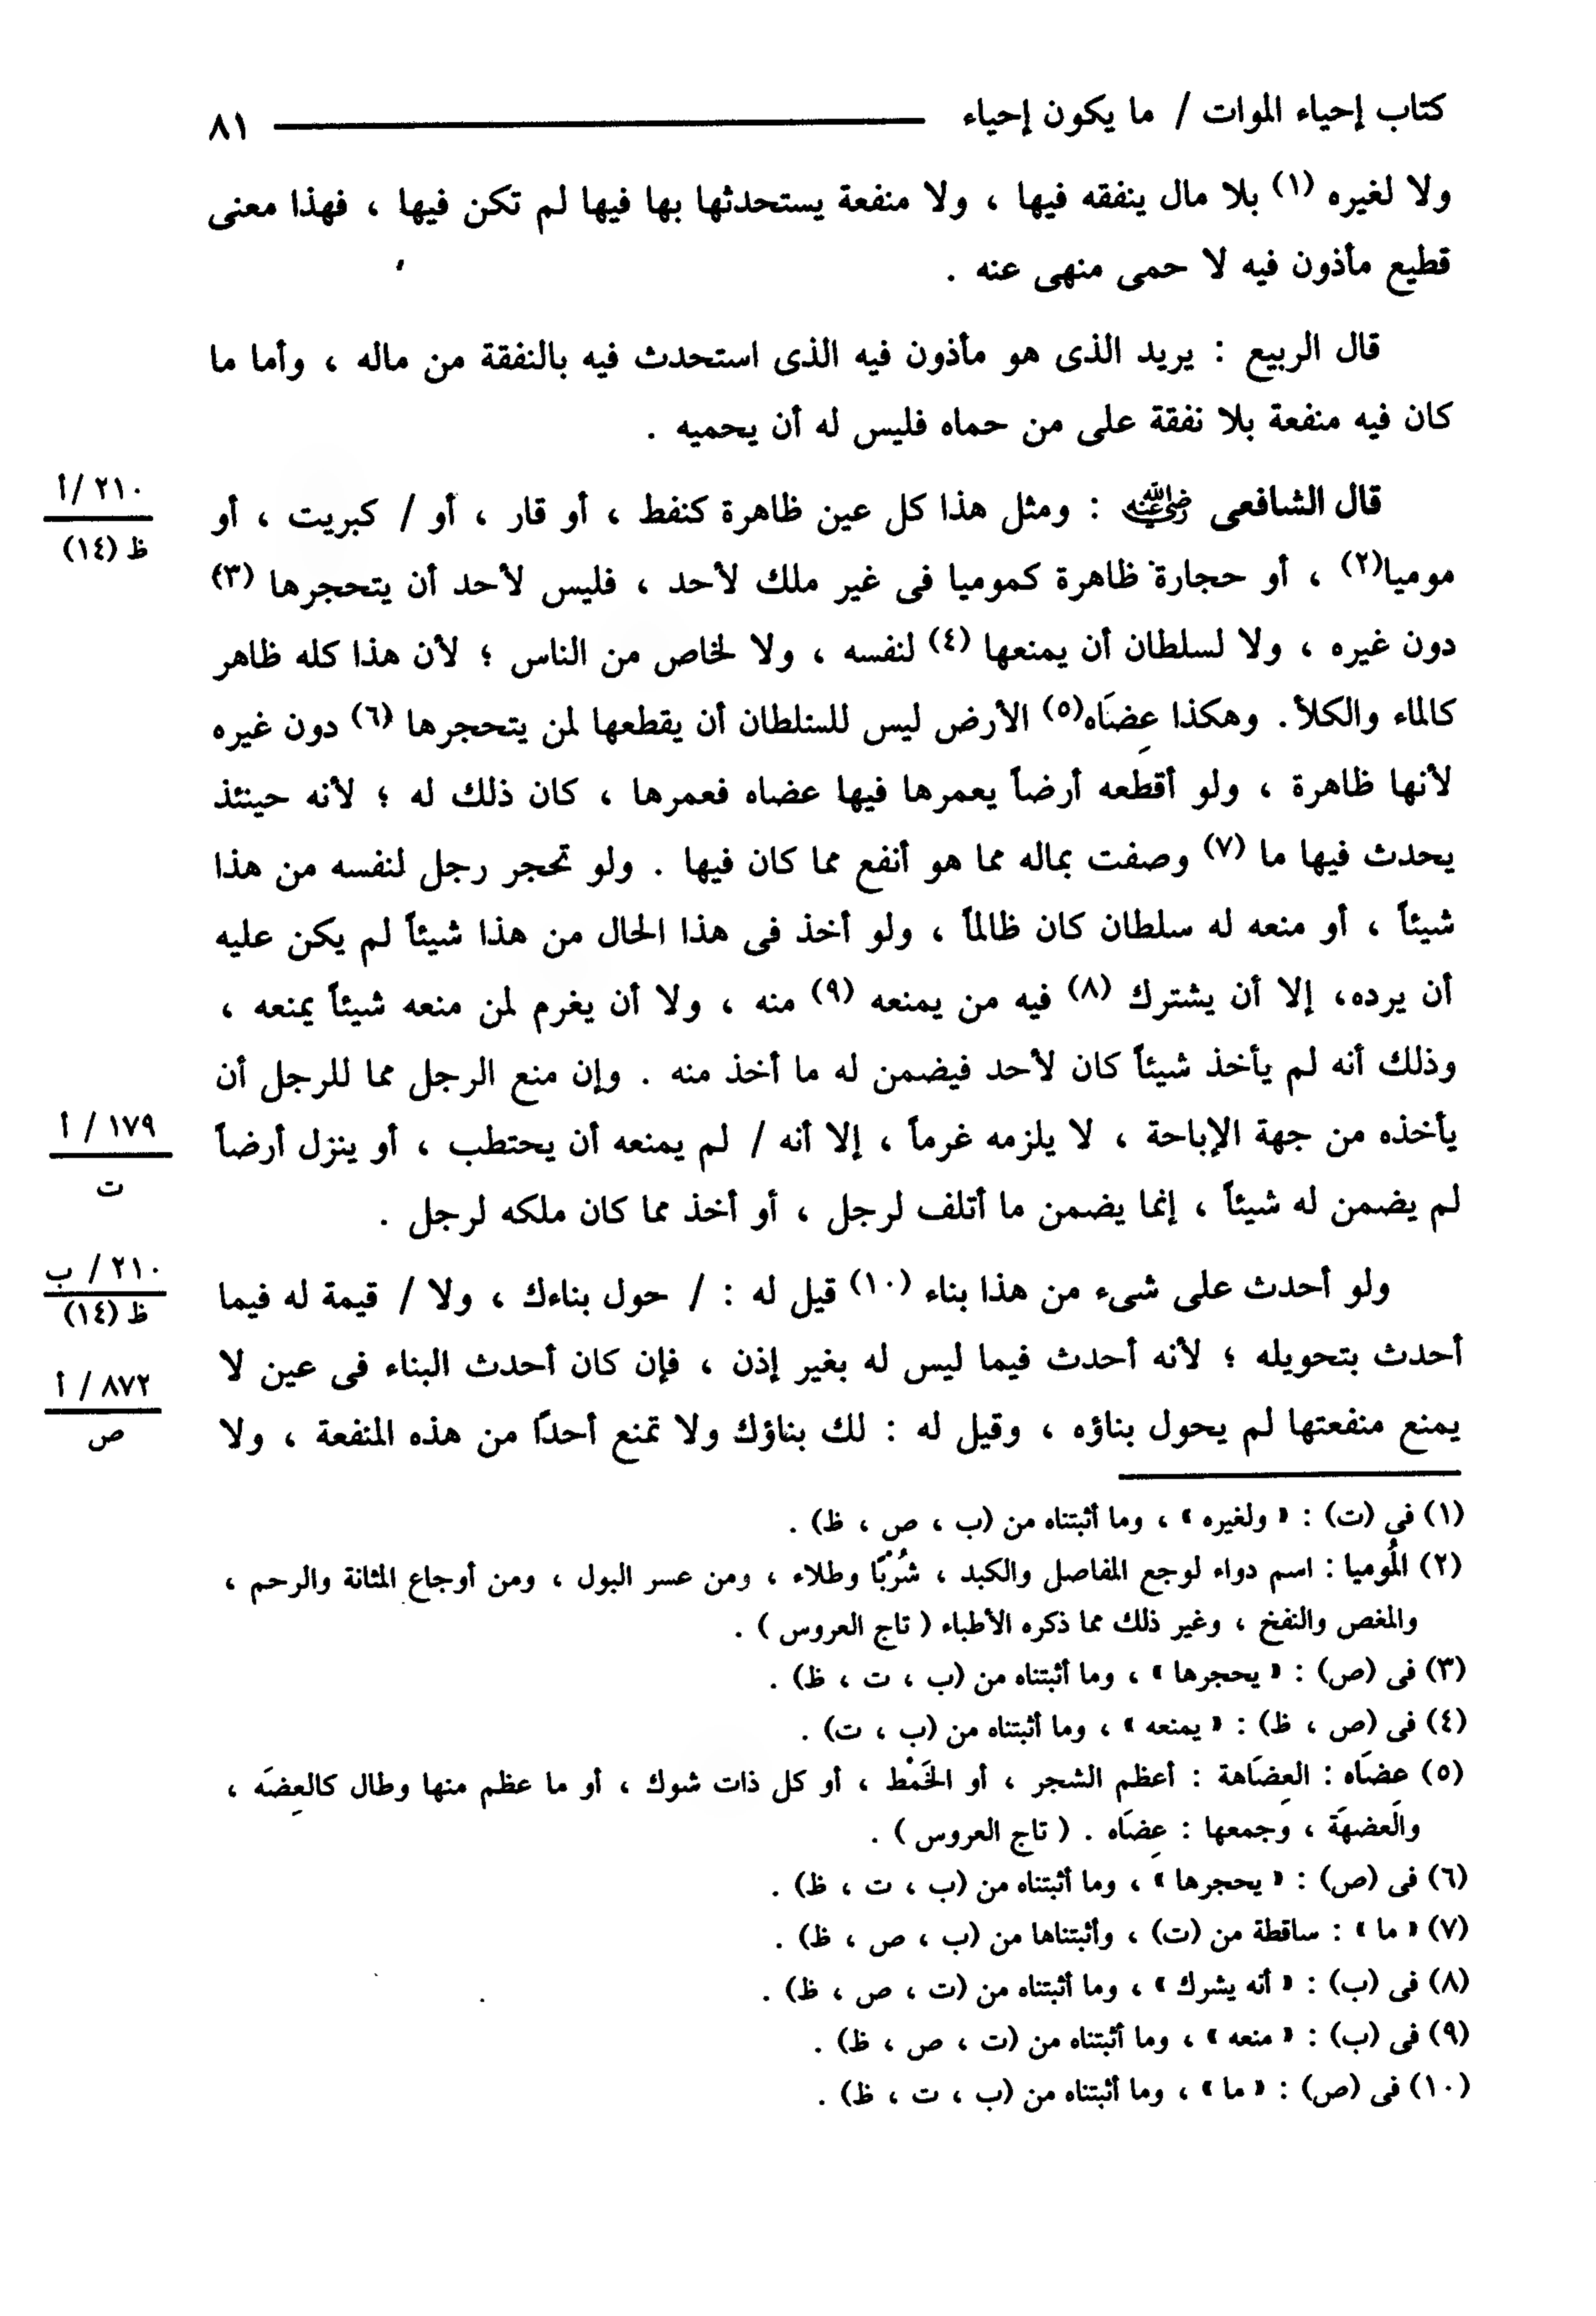 كتاب إحياء الموات / ما يكون إحياء ٨١
ولا لغيره (١) بلا مال ينفقه فيها ، ولا منفعة يستحدثها بها فيها لم تكن فيها ، فهذا معنى
قطيع مأذون فيه لا حمى منهى عنه .
قال الربيع : يريد الذى هو مأذون فيه الذى استحدث فيه بالنفقة من ماله ، وأما ما
كان فيه منفعة بلا نفقة على من حماه فليس له أن يحميه .
قال الشافعى رضي الله عنه : ومثل هذا كل عين ظاهرة كنفط ، أو قار ، أو / كبريت ، أو
٢١٠ /أ
ظ (١٤)
موميا(٢) ، أو حجارة ظاهرة كموميا فى غير ملك لأحد ، فليس لأحد أن يتحجرها (٣)
دون غيره ، ولا لسلطان أن يمنعها (٤) لنفسه ، ولا لخاص من الناس ؛ لأن هذا كله ظاهر
كالماء والكلأ. وهكذا عِضَاه(٥) الأرض ليس للسلطان أن يقطعها لمن يتحجرها (٦) دون غيره
لأنها ظاهرة ، ولو أقطعه أرضاً يعمرها فيها عضاه فعمرها ، كان ذلك له ؛ لأنه حينئذ
يحدث فيها ما (٧) وصفت بماله مما هو أنفع مما كان فيها . ولو تحجر رجل لنفسه من هذا
شيئاً ، أو منعه له سلطان كان ظالماً ، ولو أخذ فى هذا الحال من هذا شيئاً لم يكن عليه
أن يرده، إلا أن يشترك (٨) فيه من يمنعه (٩) منه ، ولا أن يغرم لمن منعه شيئاً يمنعه ،
وذلك أنه لم يأخذ شيئاً كان لأحد فيضمن له ما أخذ منه . وإن منع الرجل مما للرجل أن
يأخذه من جهة الإباحة ، لا يلزمه غرماً ، إلا أنه / لم يمنعه أن يحتطب ، أو ينزل أرضاً
١٧٩ / أ
ت
لم يضمن له شيئاً ، إنما يضمن ما أتلف لرجل ، أو أخذ مما كان ملكه لرجل .
ولو أحدث على شىء من هذا بناء (١٠) قيل له : / حول بناءك ، ولا / قيمة له فيما
٢١٠ / ب
ظ (١٤)
أحدث بتحويله ؛ لأنه أحدث فيما ليس له بغير إذن ، فإن كان أحدث البناء فى عين لا
٨٧٢ / أ
ص
يمنع منفعتها لم يحول بناؤه ، وقيل له : لك بناؤك ولا تمنع أحدًا من هذه المنفعة ، ولا
(١) فى (ت) : « ولغيره » ، وما أثبتناه من (ب ، ص ، ظ) .
(٢) المُوميا : اسم دواء لوجع المفاصل والكبد ، شُرْبًا وطلاء ، ومن عسر البول ، ومن أوجاع المثانة والرحم ،
والمغص والنفخ ، وغير ذلك مما ذكره الأطباء ( تاج العروس ) .
(٣) فى (ص) : « يحجرها » ، وما أثبتناه من (ب ، ت ، ظ) .
(٤) فى (ص ، ظ) : « يمنعه » ، وما أثبتناه من (ب ، ت) .
(٥) عضَاه : العِضَاهة : أعظم الشجر ، أو الخَمْط ، أو كل ذات شوك ، أو ما عظم منها وطال كالعِضَه ،
والعِضَهَة ، وجمعها : عِضَاه . ( تاج العروس ) .
(٦) فى (ص) : « يحجرها » ، وما أثبتناه من (ب ، ت ، ظ) .
(٧) « ما » : ساقطة من (ت) ، وأثبتناها من (ب ، ص ، ظ) .
(٨) فى (ب) : « أنه يشرك » ، وما أثبتناه من (ت ، ص ، ظ) .
(٩) فى (ب) : « منعه » ، وما أثبتناه من (ت ، ص ، ظ) .
(١٠) فى (ص) : « ما » ، وما أثبتناه من (ب ، ت ، ظ) .